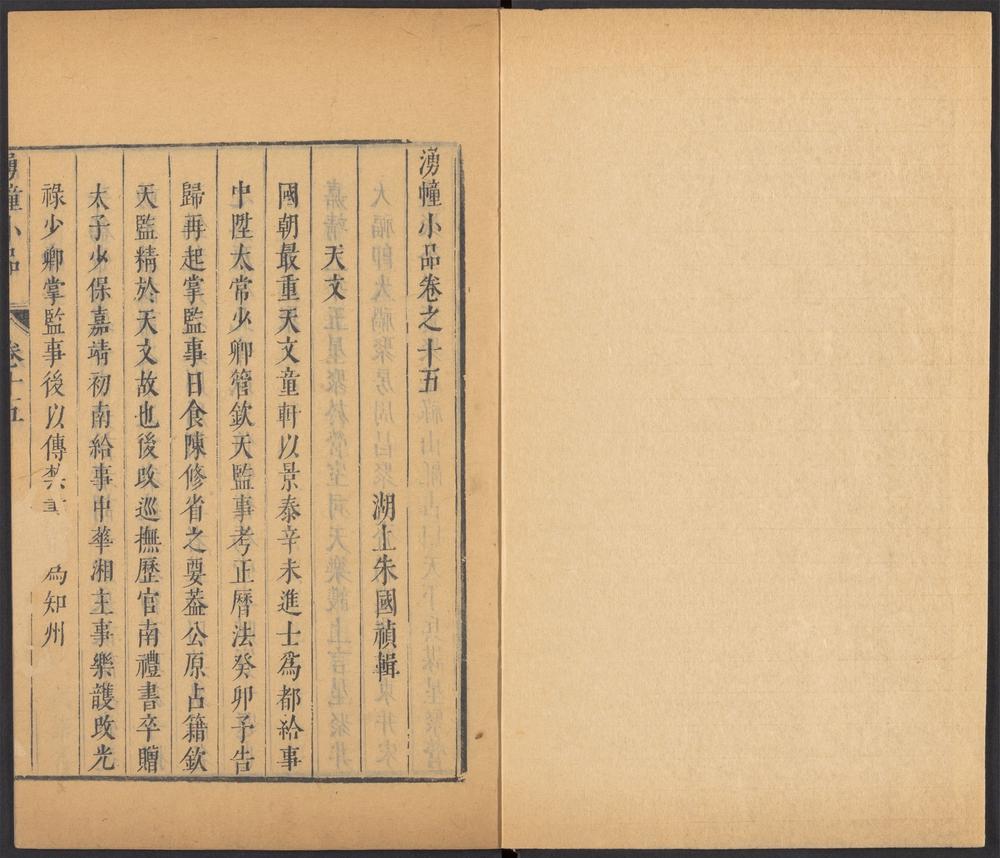 湧幢小品卷之十五
湖上朱國禎輯
天文
國朝最重天文童軒以景泰辛未進士爲都給事
中陞太常少卿管欽天監事考正曆法癸卯予告
歸再起掌監事日食陳修省之要葢公原占籍欽
天監精於天文故也後攺巡撫歷官南禮書卒贈
太子少保嘉靖初南給事中華湘主事樂頀攺光
祿少卿掌監事後以傳禁 爲知州
湧幢小品 卷十五